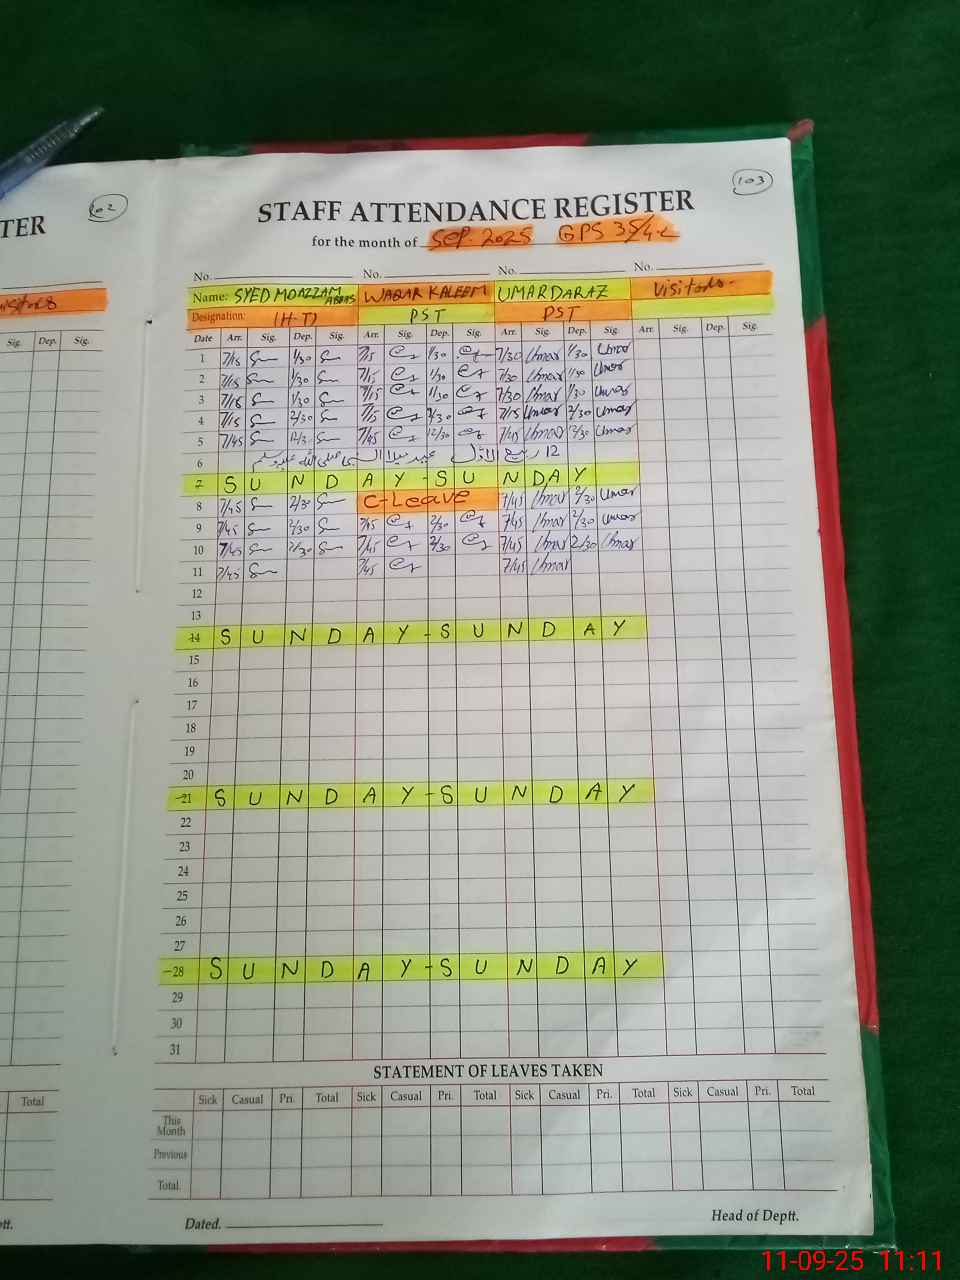 102
103
TER
STAFF ATTENDANCE REGISTER
for the month of SEP. 2025 GPS 35/4-L
No. No. No. No.
Name: SYED MOAZZAM ABBAS WAQAR KALEEM UMAR DARAZ Visitors-
Designation: (H-T) PST PST
Sig. Dep. Sig.
Date Arr. Sig. Dep. Sig. Arr. Sig. Dep. Sig. Arr. Sig. Dep. Sig. Arr. Sig. Dep. Sig.
1 7/15 1/30 7/15 1/30 7/30 Umar 1/30 Umar
2 7/15 1/30 7/15 1/30 7/30 Umar 1/30 Umar
3 7/15 1/30 7/15 1/30 7/30 Umar 1/30 Umar
4 7/15 2/30 7/15 2/30 7/15 Umar 2/30 Umar
5 7/45 12/30 7/45 12/30 7/45 Umar 12/30 Umar
6 12 ربیع الاول عید میلاد النبی صلی اللہ علیہ وسلم
7 SUNDAY-SUNDAY
8 7/45 2/30 C-Leave 7/45 Umar 2/30 Umar
9 7/45 2/30 7/45 2/30 7/45 Umar 2/30 Umar
10 7/45 2/30 7/45 2/30 7/45 Umar 2/30 Umar
11 7/45 7/45 7/45 Umar
12
13
14 SUNDAY-SUNDAY
15
16
17
18
19
20
21 SUNDAY-SUNDAY
22
23
24
25
26
27
28 SUNDAY-SUNDAY
29
30
31
STATEMENT OF LEAVES TAKEN
Total
Sick Casual Pri. Total Sick Casual Pri. Total Sick Casual Pri. Total Sick Casual Pri. Total
This Month
Previous
Total
Dated. Head of Deptt.
11-09-25 11:11